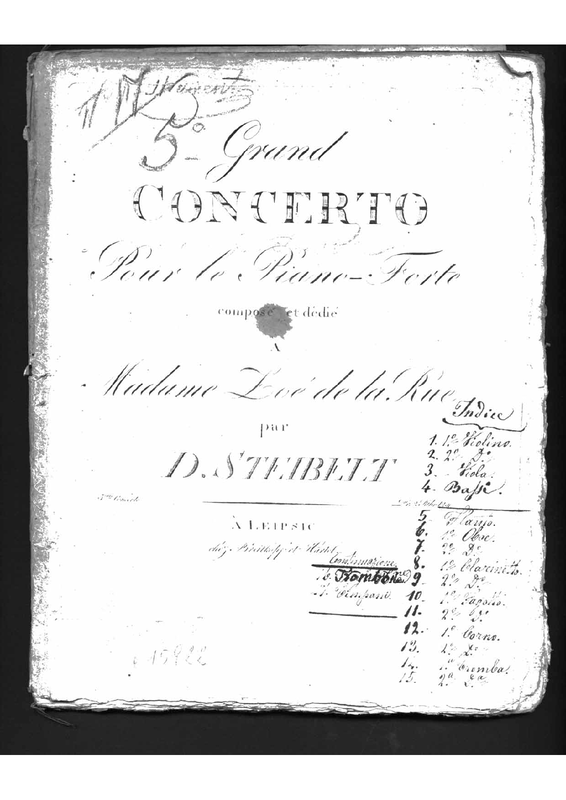 5º
Grand
CONCERTO
Pour le Piano-Forte
composé et dédié
A
Madame Zoé de la Rue
par
D. STEIBELT
À LEIPSIC
chez Breitkopf et Härtel
Indice
1. 1º Violino.
2. 2º Dº
3. Viola.
4. Bassi.
5. Flauto.
6. 1º Oboe.
7. 2º Dº
8. 1º Clarinetto.
9. 2º Dº
10. 1º Fagotto.
11. 2º Dº
12. 1º Corno.
13. 2º Dº
14. 1ª Tromba.
15. 2ª Dª
Continuazione
16. Trombone
17. Timpani